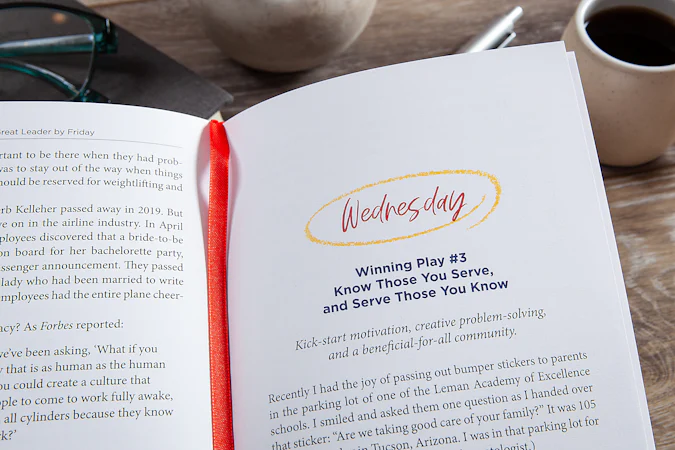 Great Leader by Friday
rtant to be there when they had prob-
was to stay out of the way when things
hould be reserved for weightlifting and
erb Kelleher passed away in 2019. But
e on in the airline industry. In April
ployees discovered that a bride-to-be
on board for her bachelorette party,
ssenger announcement. They passed
lady who had been married to write
mployees had the entire plane cheer-
ncy? As Forbes reported:
we've been asking, 'What if you
y that is as human as the human
ou could create a culture that
ople to come to work fully awake,
all cylinders because they know
rk?'
Wednesday
Winning Play #3
Know Those You Serve,
and Serve Those You Know
Kick-start motivation, creative problem-solving,
and a beneficial-for-all community.
Recently I had the joy of passing out bumper stickers to parents
in the parking lot of one of the Leman Academy of Excellence
schools. I smiled and asked them one question as I handed over
that sticker: "Are we taking good care of your family?" It was 105
in Tucson, Arizona. I was in that parking lot for